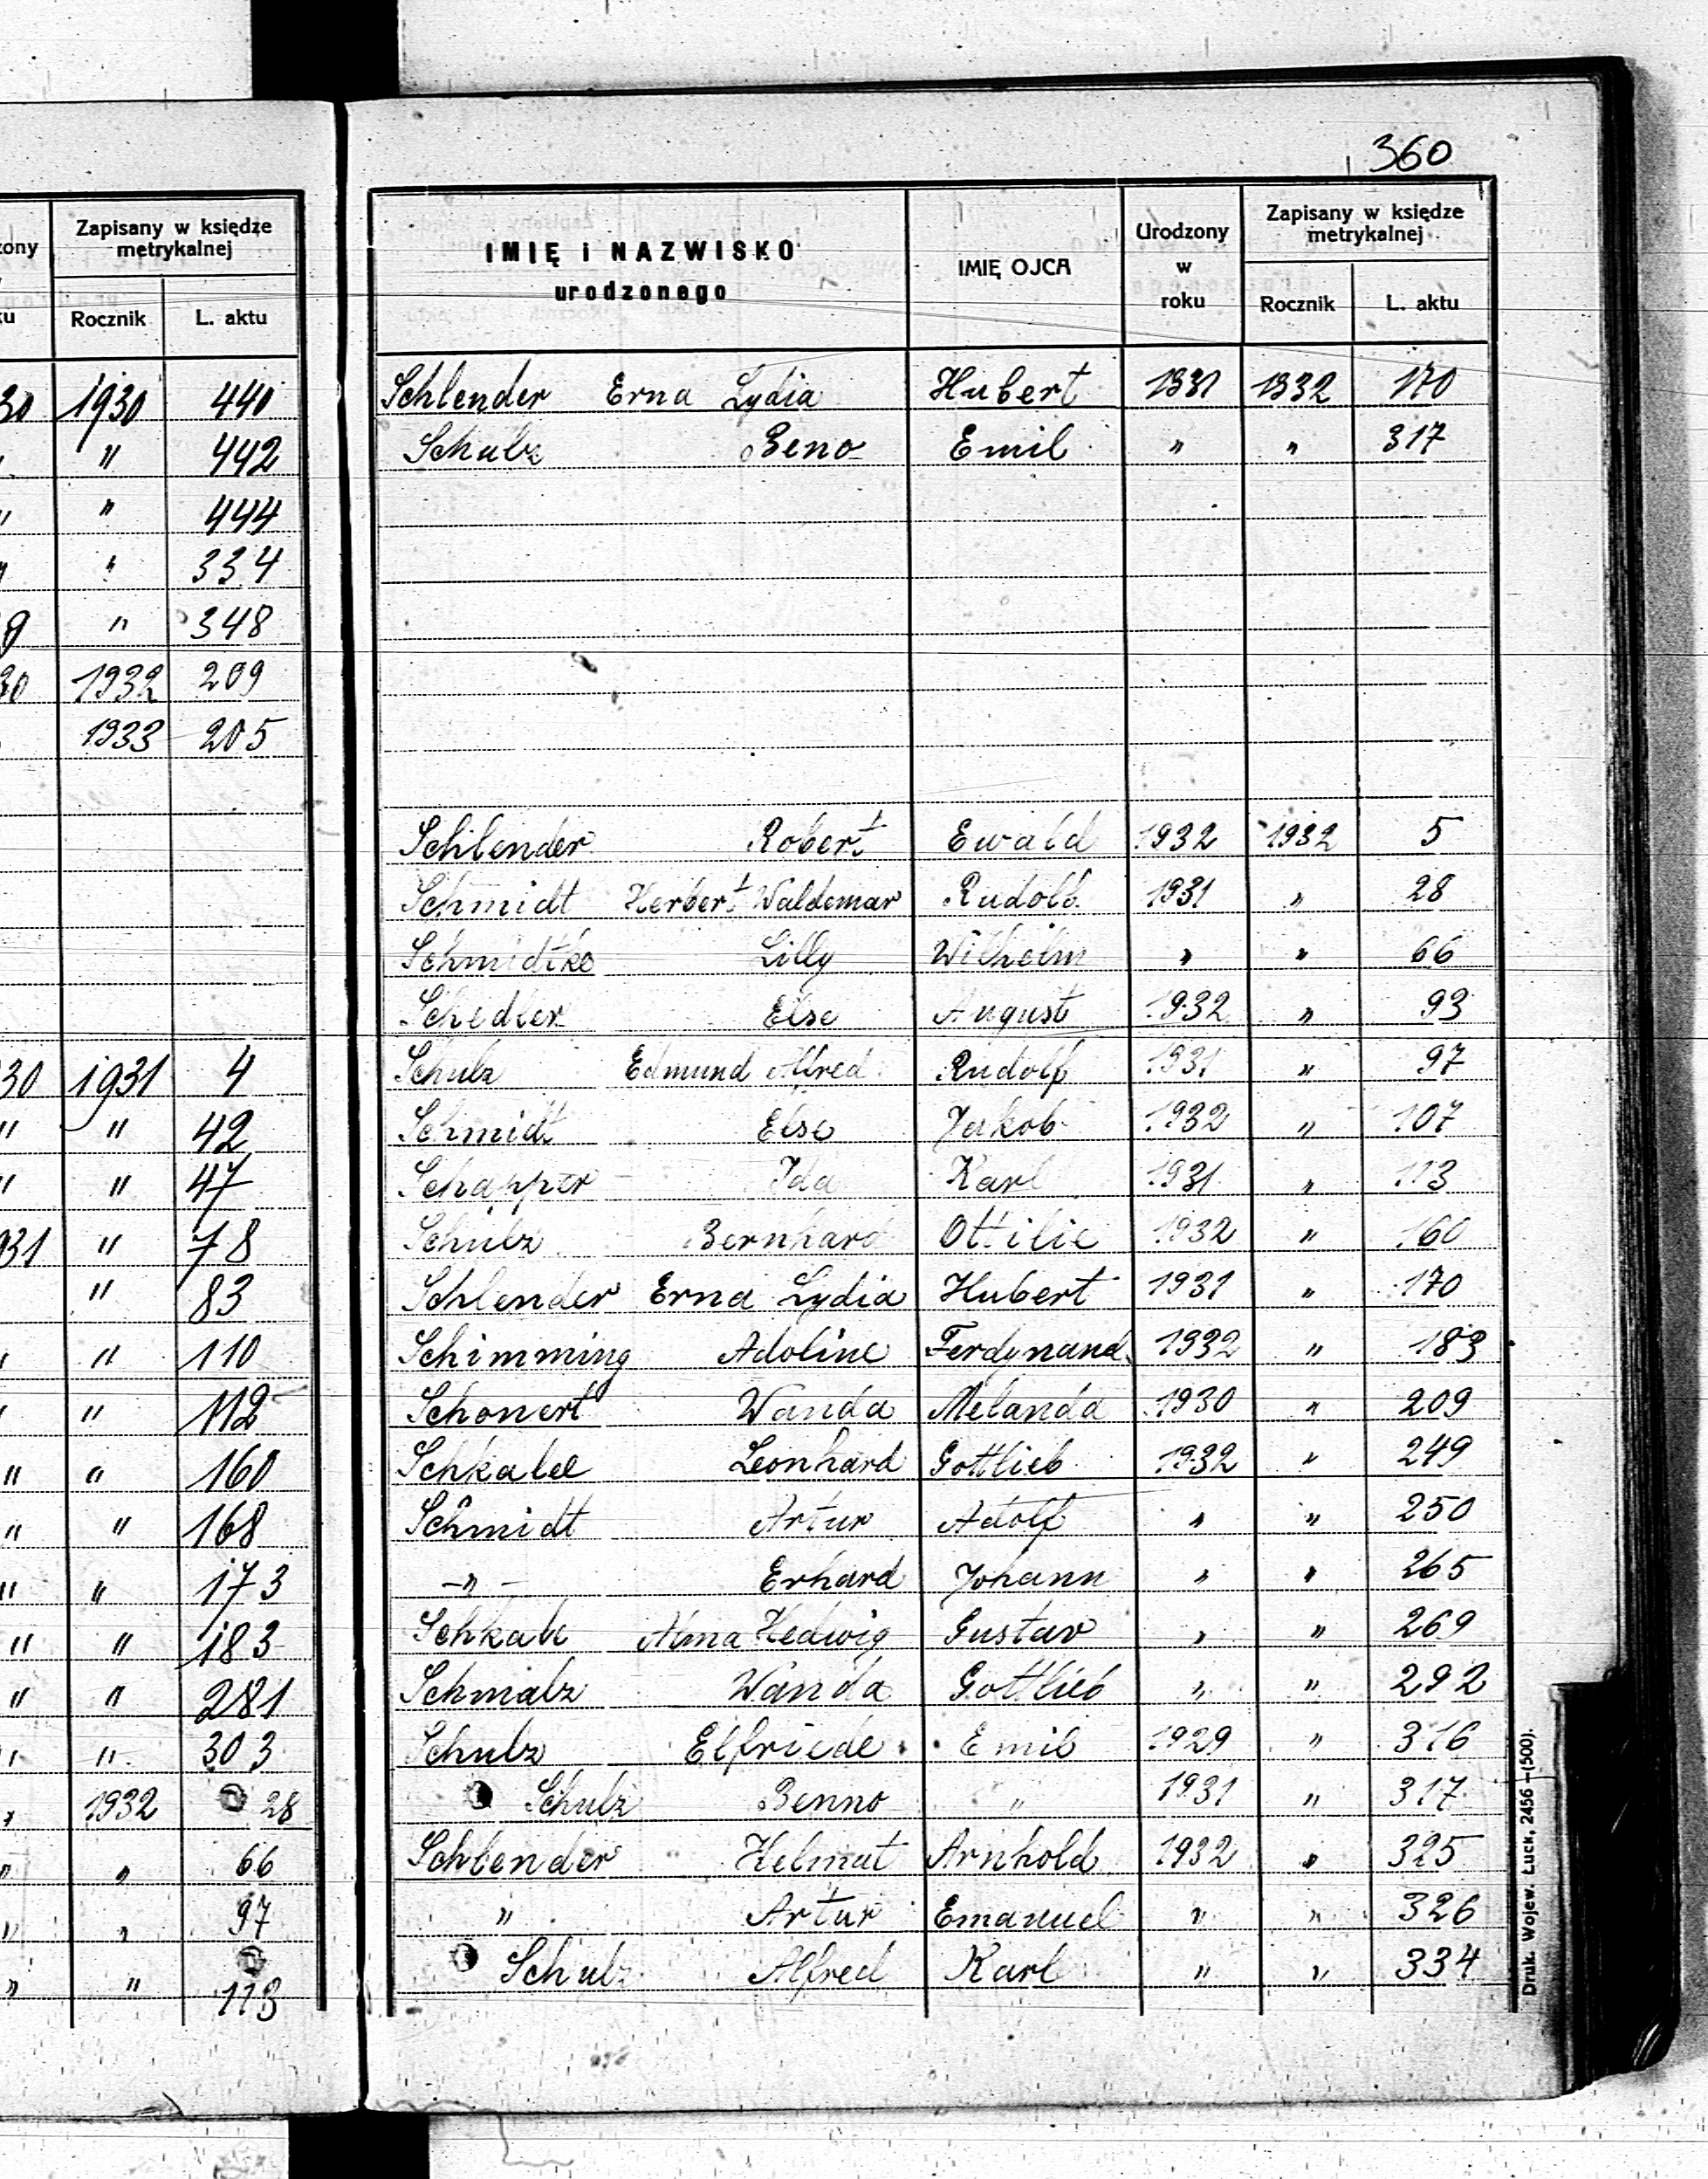 360
zony
ku
Zapisany w księdze
metrykalnej
Rocznik L. aktu
30 1930 440
" 442
" " 444
" " 334
9 " 348
30 1932 209
1933 205
30 1931 4
" " 42
" " 47
931 " 78
" 83
" " 110
" " 112
" " 160
" " 168
" " 173
" " 183
" " 281
" " 303
" 1932 28
" " 66
" " 97
" " 113
IMIĘ i NAZWISKO
urodzonego
IMIĘ OJCA
Urodzony
w
roku
Zapisany w księdze
metrykalnej
Rocznik L. aktu
Schlender Erna Lydia Hubert 1931 1932 170
Schulz Beno Emil " " 317
Schlender Robert Ewald 1932 1932 5
Schmidt Herbert Waldemar Rudolf 1931 " 28
Schmidtke Lilly Wilhelm " " 66
Schedler Else August 1932 " 93
Schulz Edmund Alfred Rudolf 1931 " 97
Schmidt Else Jakob 1932 " 107
Schapper Ida Karl 1931 " 113
Schulz Bernhard Ottilie 1932 " 160
Schlender Erna Lydia Hubert 1931 " 170
Schimming Adoline Ferdynand 1932 " 183
Schonert Wanda Melanda 1930 " 209
Schkalee Leonhard Gottlieb 1932 " 249
Schmidt Artur Adolf " " 250
-"- Erhard Johann " " 265
Schkale Alma Hedwig Gustav " " 269
Schmalz Wanda Gottlieb " " 292
Schulz Elfriede Emil 1929 " 316
Schulz Benno " 1931 " 317
Schlender Helmut Arnhold 1932 " 325
" Artur Emanuel " " 326
Schulz Alfred Karl " " 334
Druk. Wojew. Łuck, 2456 — (500).